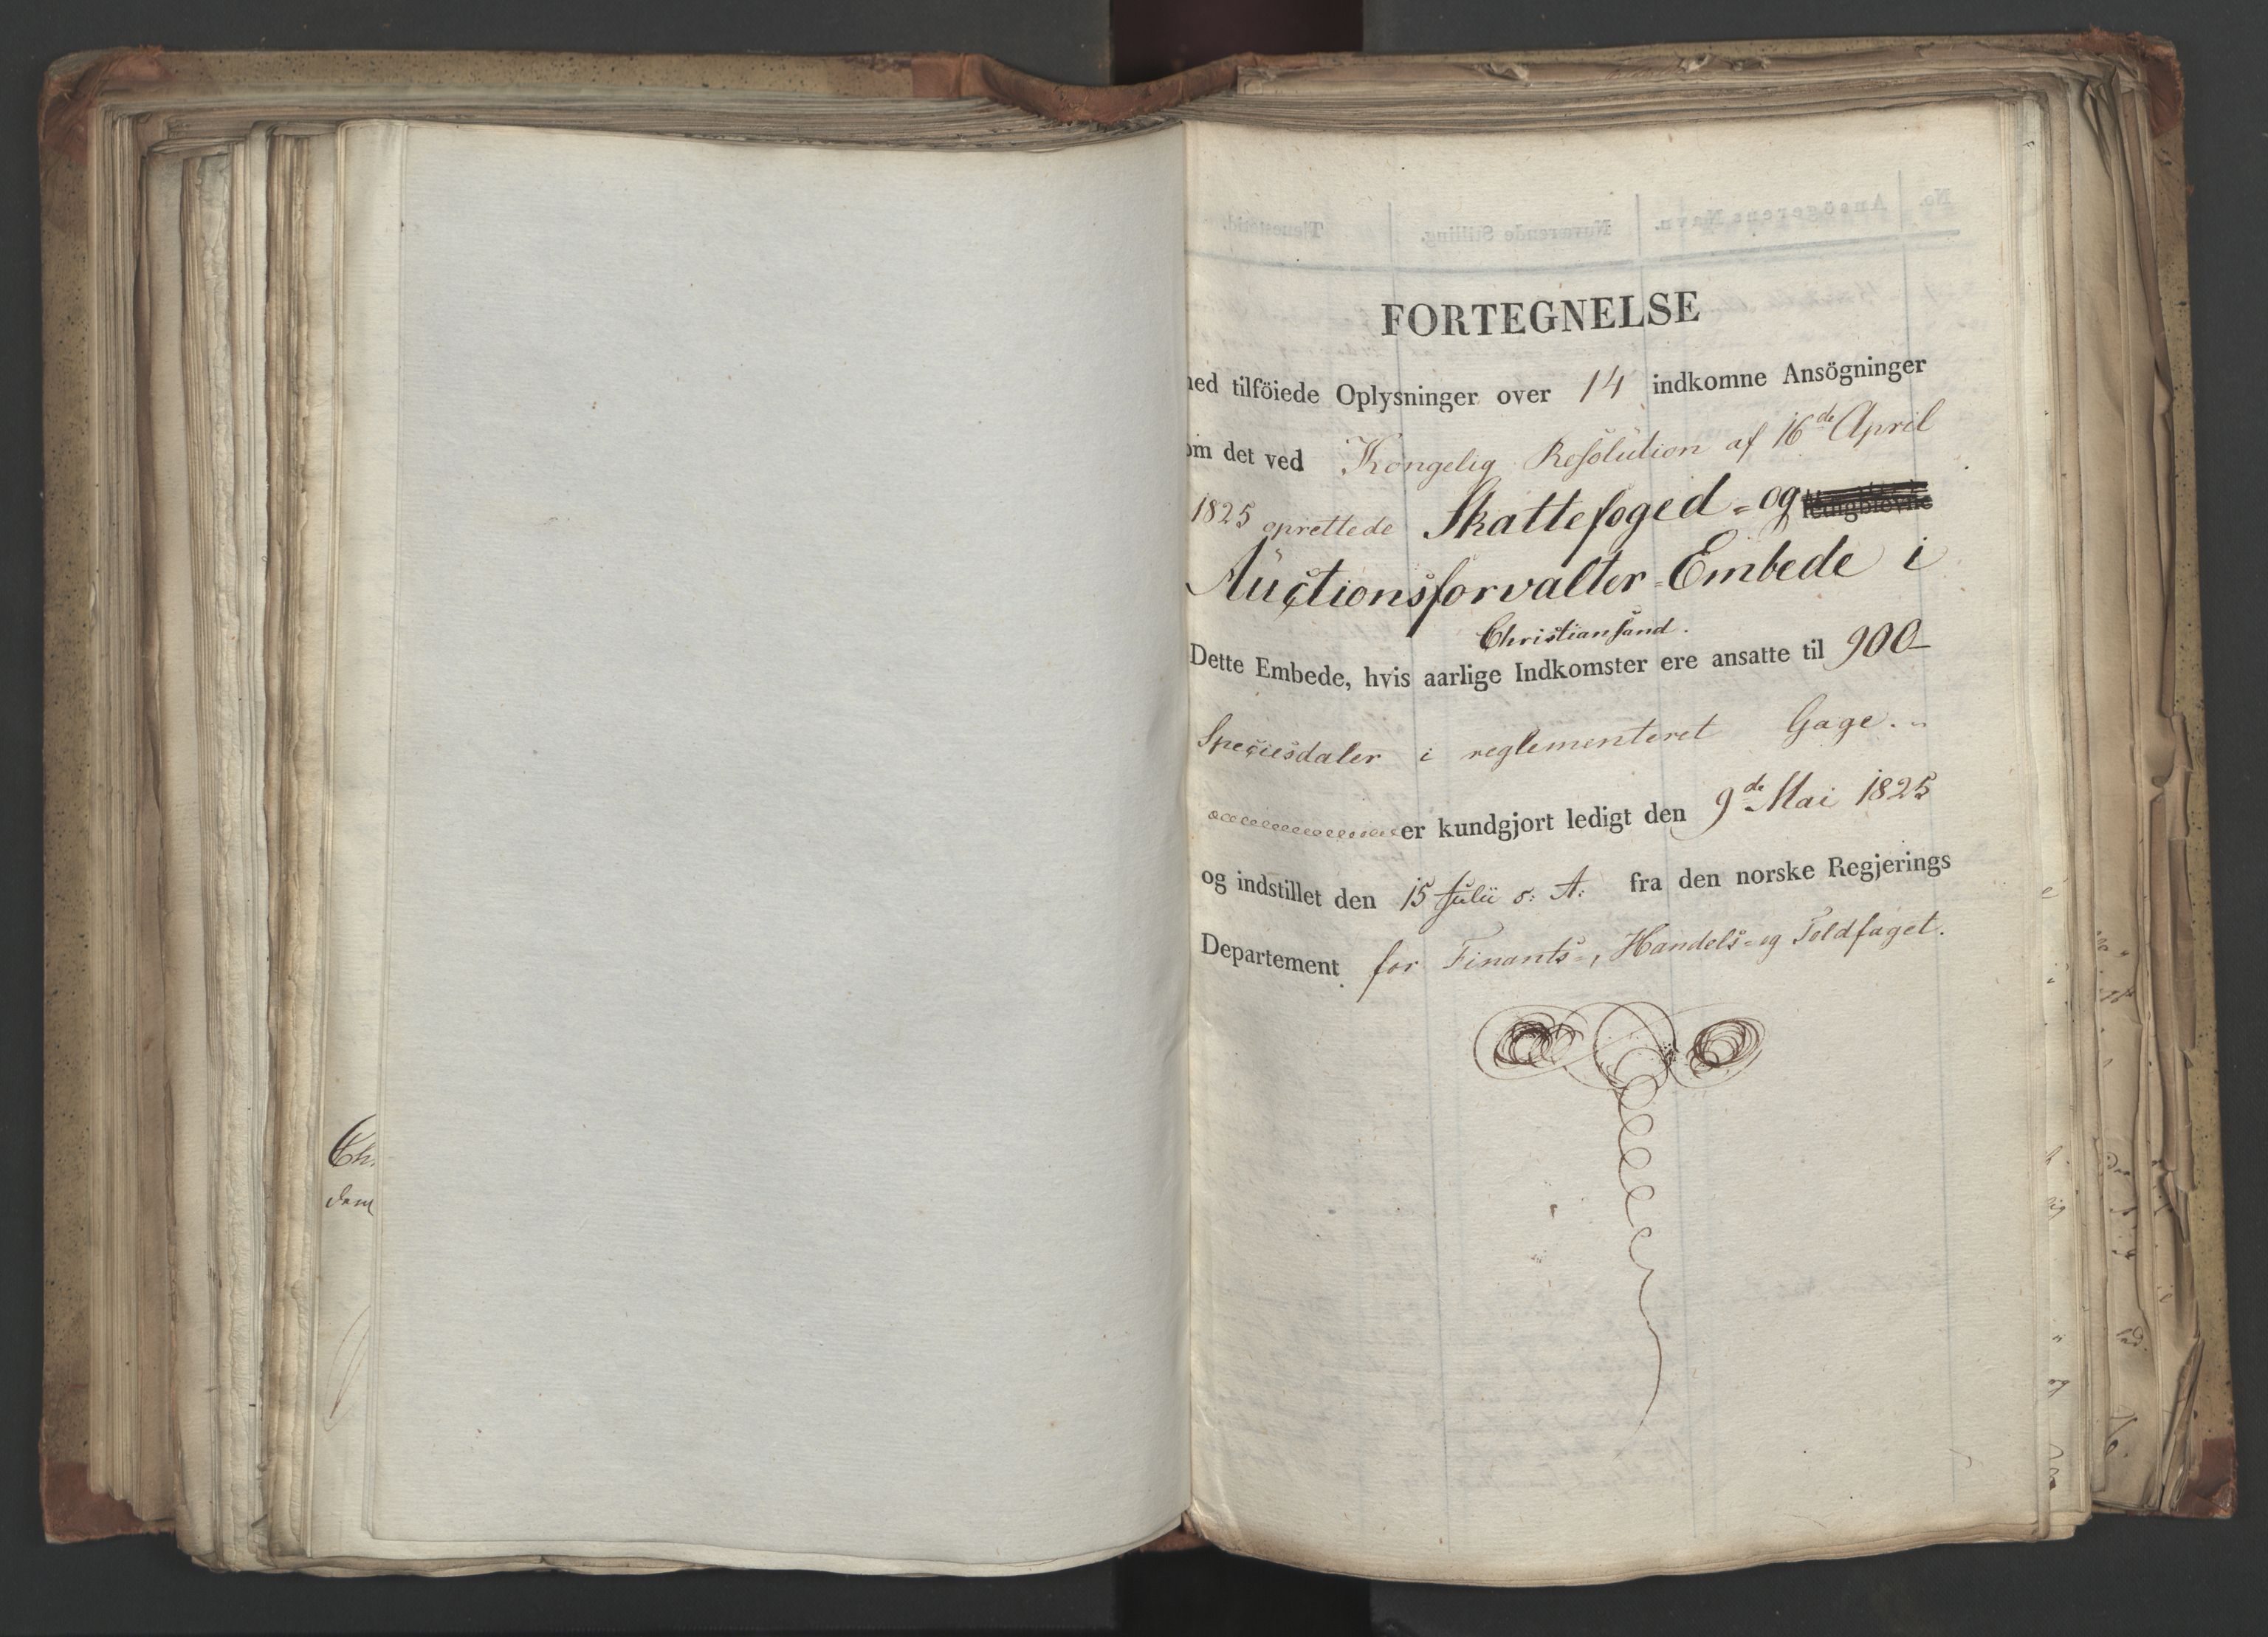 FORTEGNELSE
ned tilföiede Oplysninger over 14 indkomne Ansögninger
om det ved Kongelig Resolution af 16de April
1825 oprettede Skattefoged- og ledigblevne
Auctionsforvalter-Embede i
Christiansand.
Dette Embede, hvis aarlige Indkomster ere ansatte til 900
Speciesdaler i reglementeret Gage.
er kundgjort ledigt den 9de Mai 1825
og indstillet den 15 Julii s: A: fra den norske Regjerings
Departement for Finants-, Handels- og Toldfaget.
Ch.
dem